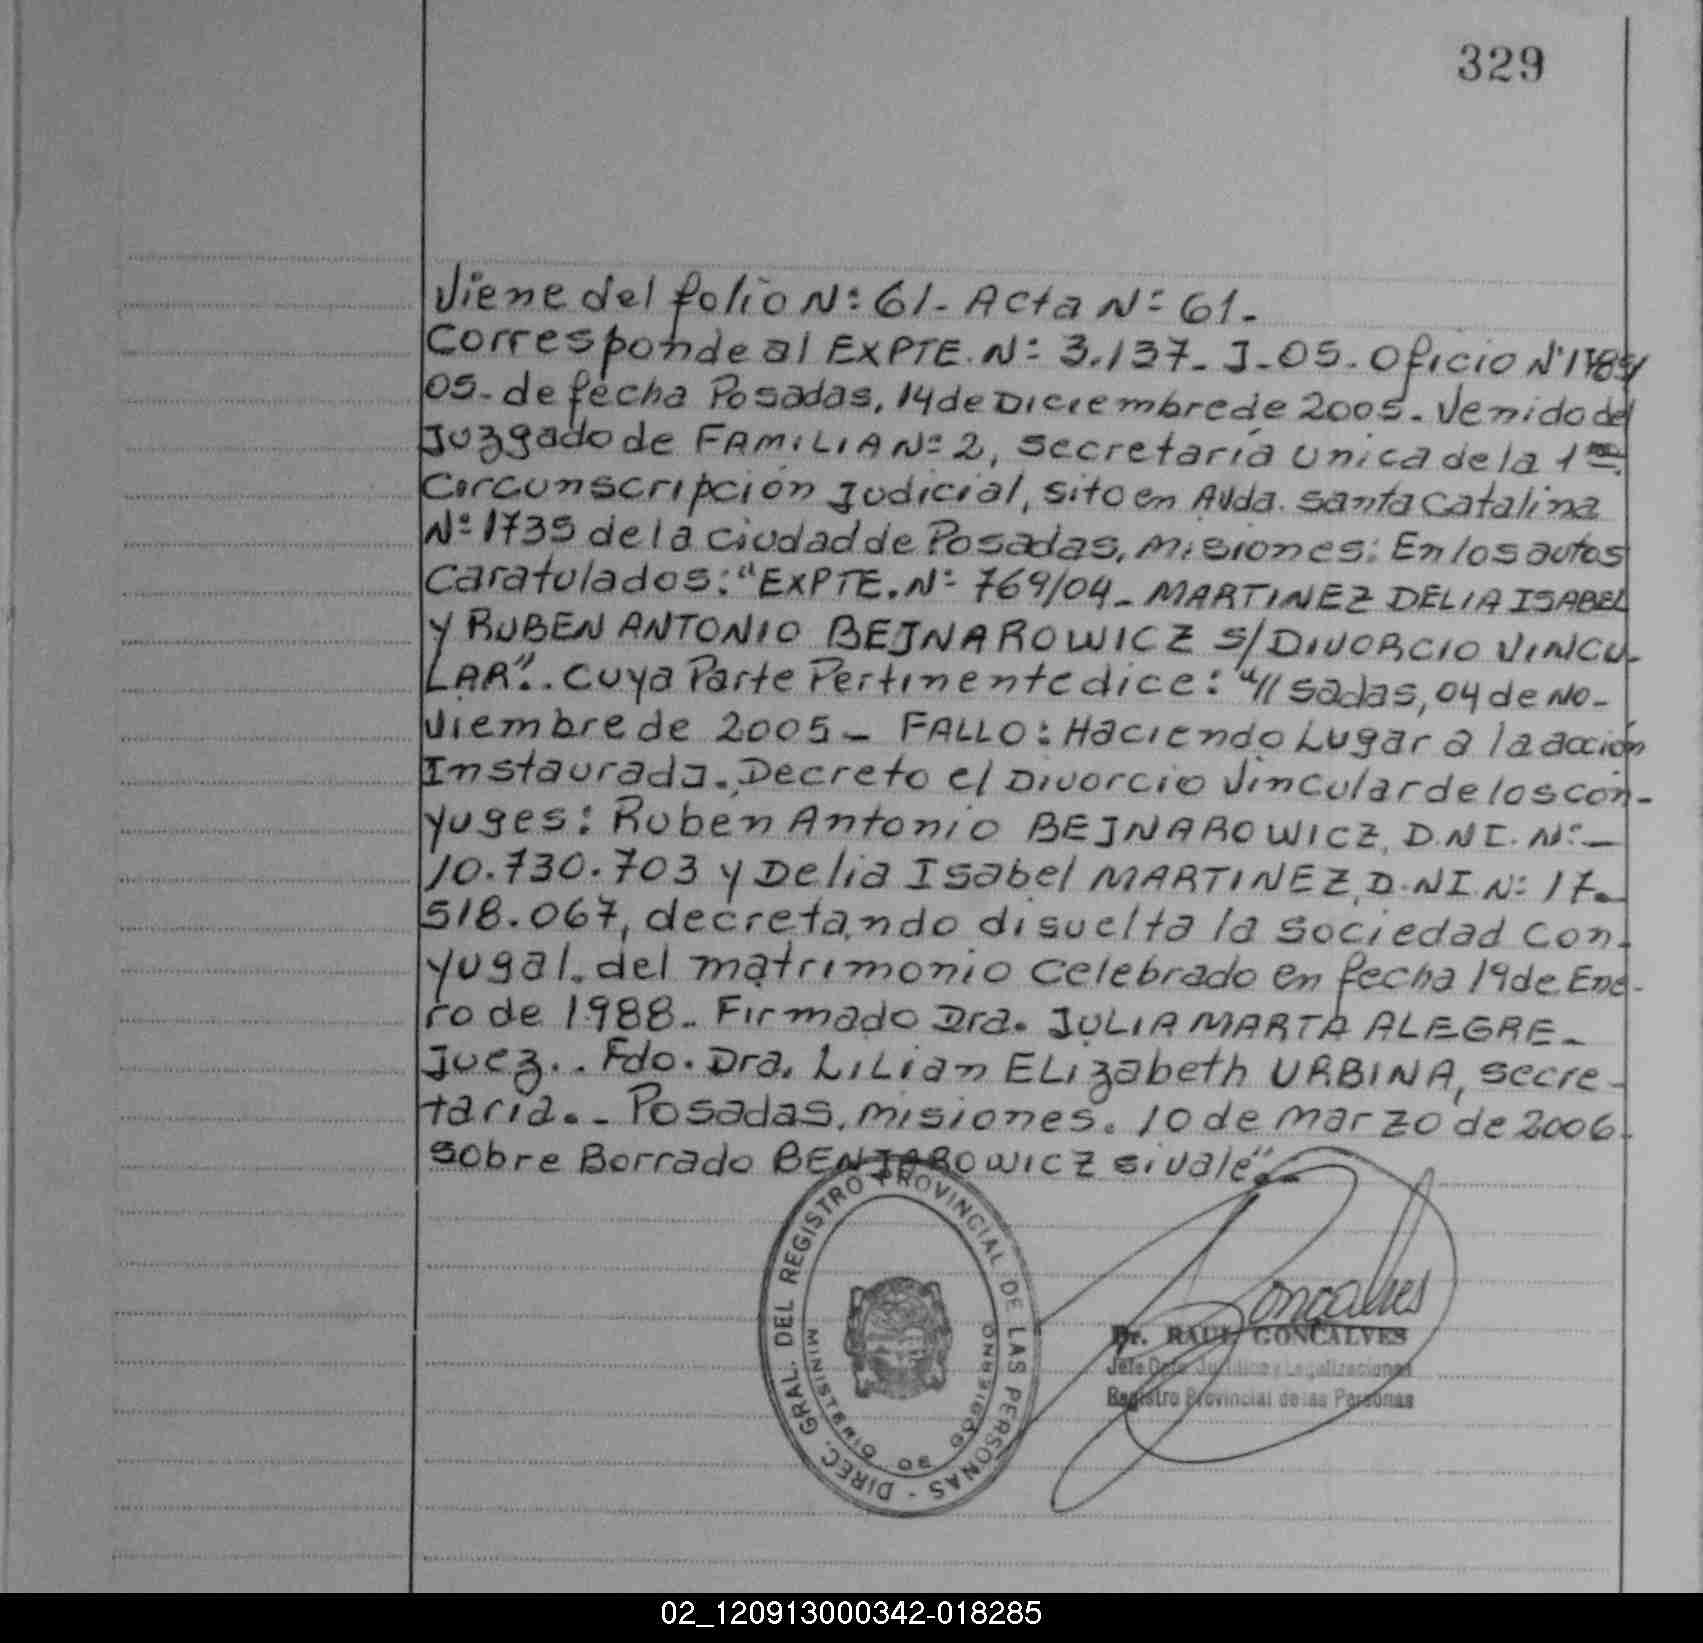 329
Viene del folio Nº 61- Acta Nº 61.
Corresponde al EXPTE. Nº 3.137- J-05. Oficio Nº
05- de fecha Posadas, 14 de Diciembre de 2005- Venido del
Juzgado de FAMILIA Nº 2, Secretaría Unica de la 1ra.
Circunscripción Judicial, sito en Avda. Santa Catalina
Nº 1735 de la ciudad de Posadas, Misiones: En los autos
Caratulados: "EXPTE. Nº 769/04- MARTINEZ DELIA ISABEL
y RUBEN ANTONIO BEJNAROWICZ S/DIVORCIO VINCU-
LAR".. Cuya Parte Pertinente dice: "//sadas, 04 de No-
viembre de 2005- FALLO: Haciendo Lugar a la acción
Instaurada. Decreto el Divorcio Vincular de los cón-
yuges: Ruben Antonio BEJNAROWICZ, D.N.I. Nº-
10.730.703 y Delia Isabel MARTINEZ, D.N.I. Nº 17.
518.067, decretando disuelta la Sociedad Con-
yugal. del matrimonio Celebrado en fecha 19 de Ene-
ro de 1988.. Firmado Dra. JULIA MARTA ALEGRE-
Juez.. Fdo. Dra. LILian ELizabeth URBINA, Secre-
taria.- Posadas, Misiones. 10 de Marzo de 2006.
Sobre Borrado BENJAROWICZ si vale".-
DIREC. GRAL. DEL REGISTRO PROVINCIAL DE LAS PERSONAS -
MINISTERIO DE GOBIERNO
Goncalves
Dr. RAUL GONCALVES
Jefe Dpto. Jurídico y Legalizaciones
Registro Provincial de las Personas
02_120913000342-018285